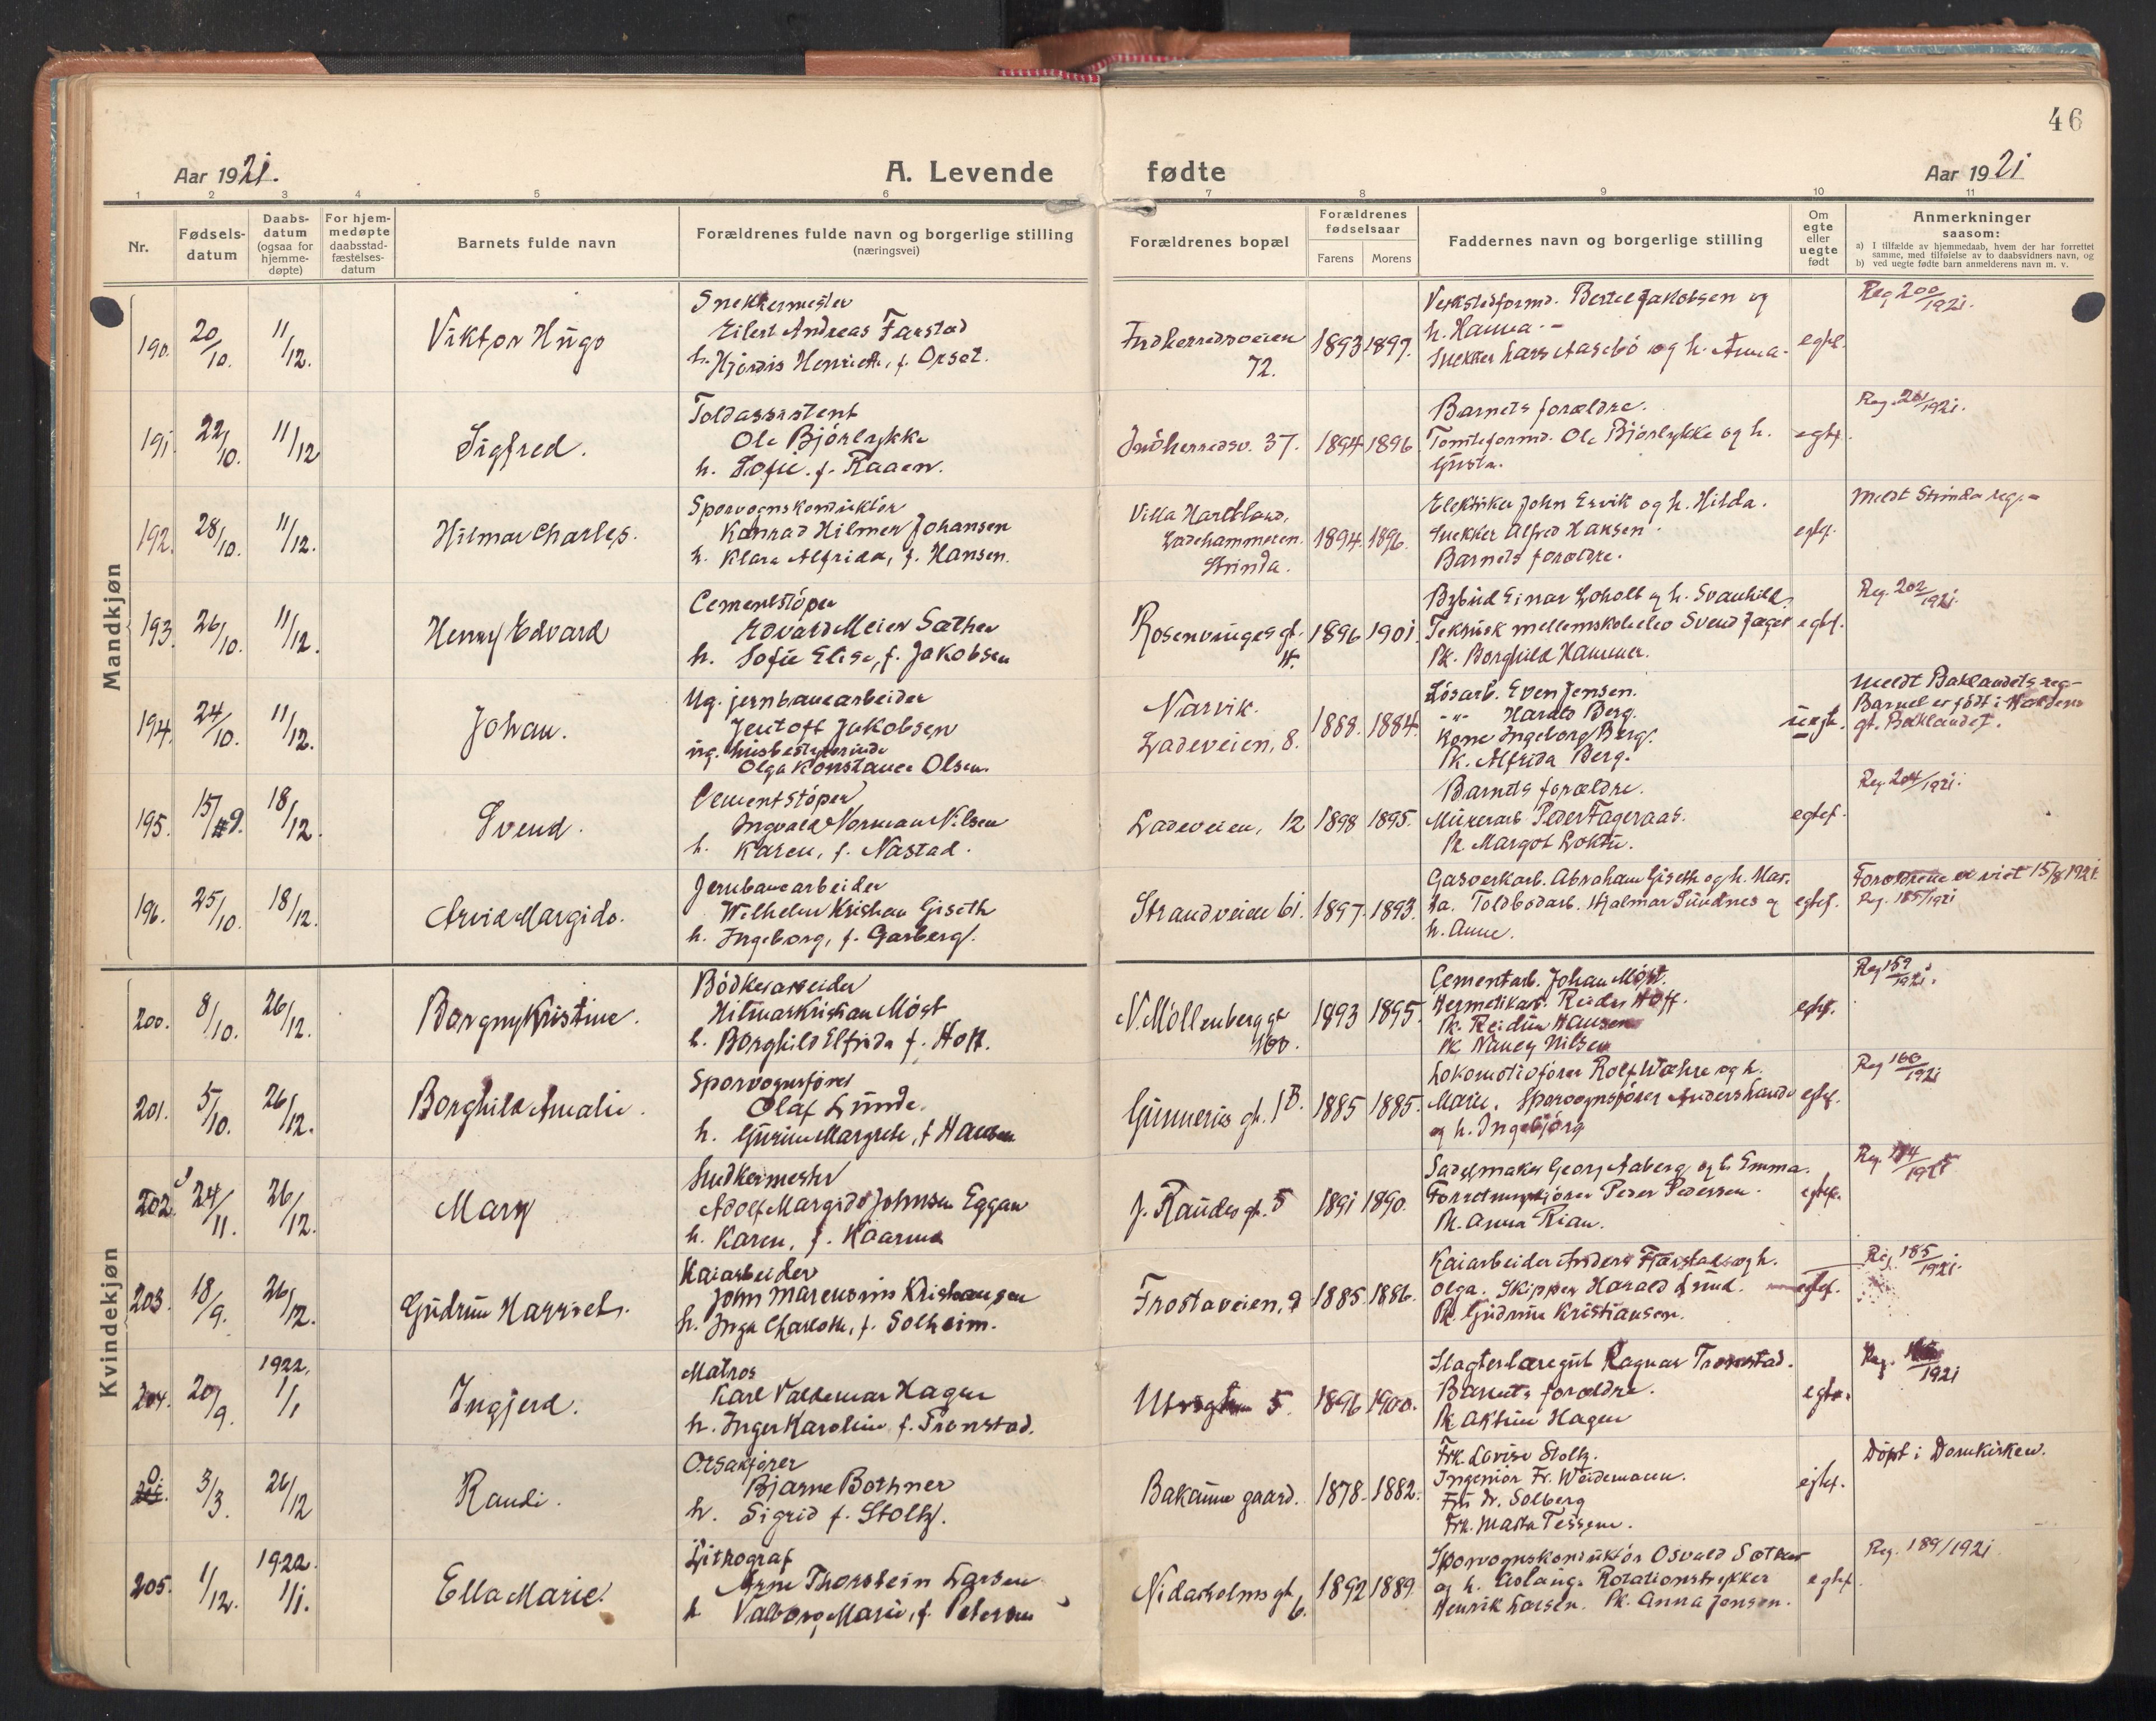 46
Aar 1921.
A. Levende
fødte
Aar 1921
1 2 3 4 5 6 7 8 9 10 11
Nr.
Fødsels-
datum
Daabs-
datum
(ogsaa for
hjemme-
døpte)
For hjem-
medøpte
daabsstad-
fæstelses-
datum
Barnets fulde navn
Forældrenes fulde navn og borgerlige stilling
(næringsvei)
Forældrenes bopæl
Forældrenes
fødselsaar
Farens
Morens
Faddernes navn og borgerlige stilling
Om
egte
eller
uegte
født
Anmerkninger
saasom:
a) I tilfælde av hjemmedaab, hvem der har forrettet
samme, med tilføielse av to daabsvidners navn, og
b) ved uegte fødte barn anmelderens navn m. v.
Mandkjøn
190. 20/10. 11/12. Viktor Hugo
Snekkermester
Eilert Andreas Farstad
h. Hjördis Henriette, f. Orset.
Indherredsveien
72.
1893 1897.
Verkstedformd. Bertel Jakobsen og
h. Hanna. -
Snekker Lars Aasebö og h. Anna.
egtef.
Reg 200/1921.
191. 22/10. 11/12 Sigfred.
Toldassistent
Ole Björlykke
h. Sofie. f. Raaen.
Indherredsv. 37.
1894 1896
Barnets forældre.
Tomteformd. Ole Björlykke og h.
Gusta.
egtf.
Reg. 201/1921.
192. 28/10. 11/12. Hilmar Charles.
Sporvognskonduktör
Konrad Hilmer Johansen
h. Klara Alfrida, f. Hansen.
Villa
Ladehammeren
Strinda.
1894. 1896.
Elektriker John Ervik og h. Hilda.
Snekker Alfred Hansen.
Barnets forældre.
egtef.
Meldt Strinda reg. -
193. 26/10. 11/12. Henry Edvard
Cementstöper
Edvard Meier Sæther
h. Sofie Elise, f. Jakobsen
Rosenvinges gt.
1896 1901.
Bybud Einar Loholt og h. Svanhild.
Teknisk mellemskoleelev Svend Jæger
Pk. Borghild Hammer.
egtf.
Reg. 202/1921.
194. 24/10. 11/12. Johan.
Ug. jernbanearbeider
Jentoft Jakobsen
ug. husbestyrerinde
Olga Konstance Olsen.
Narvik.
Ladeveien, 8.
1888. 1884.
Lösarb. Even Jensen.
-"- Harald Berg.
Kone Ingeborg Berg.
Pk. Alfrida Berg.
uegte.
Meldt Baklandets reg-
Barnet er født i
gt. Baklandet.
195. 15/9. 18/12. Svend.
Cementstöper
Ingvald Norman Nilsen
h. Karen, f. Nastad.
Ladeveien, 12
1898 1895.
Barnets forældre.
Murerarb. Peder Fageraas.
Pk. Margot Loktu.
egtef.
Reg. 204/1921.
196. 25/10. 18/12. Arvid Margido.
Jernbanearbeider
Wilhelm Kristian Giseth
h. Ingeborg, f. Garberg.
Strandveien 61.
1897. 1893.
Gasverkarb. Abraham Giseth og h. Mar-
ta. Toldbodarb. Hjalmar Sundnes og
h. Anne.
egtef.
Forældrene er viet 15/8 1921.
Reg. 185/1921
Kvindekjøn
200. 8/10. 26/12. Borgny Kristine.
Bödkerarbeider
Hilmar Kristian Möst
h. Borghild Elfrida f. Hoff.
N. Möllenberg gt
100.
1893 1895.
Cementarb. Johan Möst.
Hermetikarb. Reidar Hoff.
Pk. Reidun Hansen
Pk Nancy Nilsen
egtef.
Reg 159/1921.
201. 5/10. 26/12. Borghild Amalie.
Sporvognsförer
Olaf Lunde.
h. Gurine Margrete, f Hansen
Gunnerus gt. 1B.
1885 1885.
Lokomotivförer Rolf Wæhre og h.
Marie. Sporvognsförer Anders Lunde
og h. Ingebjörg
egtef.
Reg 166/1921
202. 24/11. 26/12. Mary
Snekkermester
Adolf Margido Johnsen Eggan
h. Karen, f. Kaarmo
J. Randes gt. 5
1891 1890.
Sadelmaker Georg Aaberg og h. Emma.
Forretningskjörer Peder Pedersen.
Pk. Anna Rian.
egtef.
Reg. 174/1921
203. 18/9. 26/12. Gudrun Harriet.
Kaiarbeider
John Marensius Kristiansen
h. Inga Charlotte, f. Solheim.
Frostaveien, 9
1885. 1886.
Kaiarbeider Anders Fjærstad og h.
Olga. Skipper Harald Lund.
Pk. Gudrun Kristiansen.
egtef.
Reg. 185/1921.
204. 20/9. 1922. 1/1 Ingjerd.
Matros
Karl Valdemar Hagen
h. Inger Karoline f. Tronstad.
5.
1896 1900.
Slagterlæregut Ragnar Tronstad.
Barnets forældre.
Pk Hagen
egte.
Reg. /1921
3/3. 26/12 Randi.
Otsakförer
Bjarne Bothner
h. Sigrid f. Stoltz.
Bakaune gaard.
1878. 1882.
Frk. Lovise Stoltz.
Ingeniör Fr. Weidemann.
Fru Dr. Solberg
Frk. Marta Tessem.
egtef.
Döpt i Domkirken.
205. 1/12. 1922. 1/1. Ella Marie.
Lithograf
Arne Thorstein Larsen
h Valborg Marie, f. Petersen
Nidarholms gt 6.
1892 1889
Sporvognskonduktör Osvald Sæther
og h. Aslaug. Rotationstrykker
Henrik Larsen. Pk. Anna Jensen.
egtef.
Reg. 189/1921